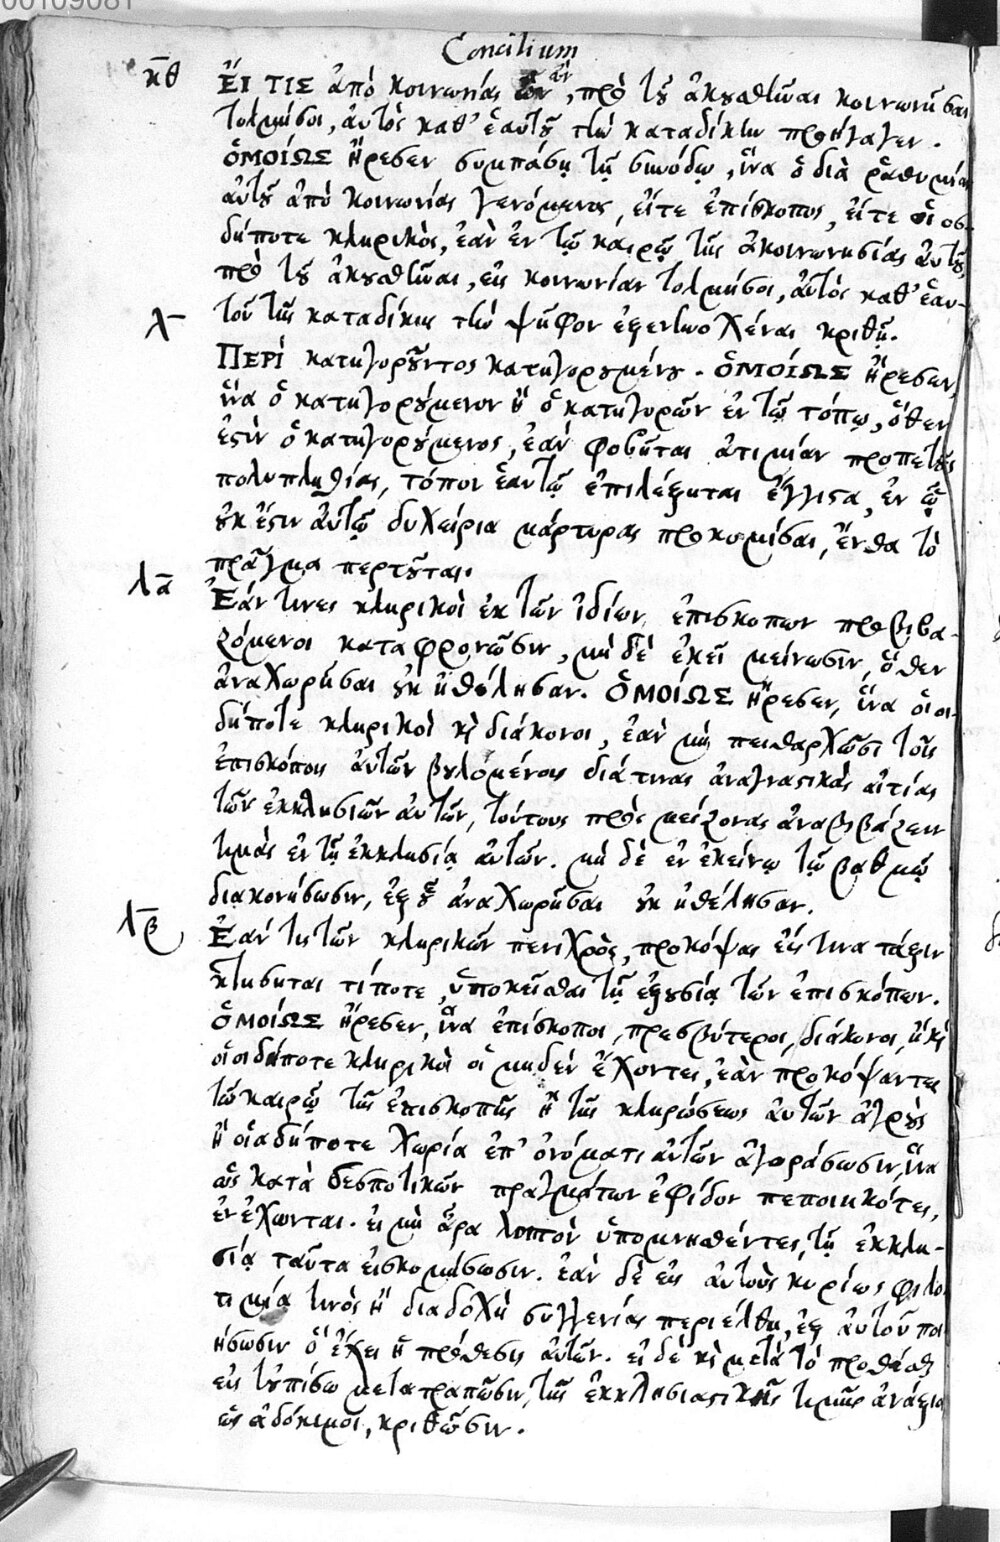 00109081
Concilium
κ̅θ ἜΙ ΤΙΣ ἀπὸ κοινωνίας ὢν, πρὸ τοῦ ἀκουσθῆναι κοινωνῆσαι
τολμήσοι, αὐτὸς καθ' ἑαυτοῦ τὴν καταδίκην προήγαγεν.
ὉΜΟΊΩΣ ἤρεσεν συμπάσῃ τῇ συνόδῳ, ἵνα ὁ διὰ ῥαθυμίαν
αὐτοῦ ἀπὸ κοινωνίας γενόμενος, εἴτε ἐπίσκοπος, εἴτε οἱοσ-
δήποτε κληρικὸς, ἐὰν ἐν τῷ καιρῷ τῆς ἀκοινωνησίας αὐτοῦ,
πρὸ τοῦ ἀκουσθῆναι, εἰς κοινωνίαν τολμήσοι, αὐτὸς καθ' ἑαυ-
τοῦ τῆς καταδίκης τὴν ψῆφον ἐξενηνοχέναι κριθῇ.
λ̅ ΠΕΡΊ κατηγοροῦντος κατηγορουμένου. ὉΜΟΊΩΣ ἤρεσεν,
ἵνα ὁ κατηγορούμενον ἢ ὁ κατηγορῶν ἐν τῷ τόπῳ, ὅθεν
ἐστὶν ὁ κατηγορούμενος, ἐὰν φοβῆται ἀτιμίαν προπετοῦς
πολυπληθίας, τόπον ἑαυτῷ ἐπιλέξηται ἔγγιστα, ἐν ᾧ
οὐκ ἔστιν αὐτῷ δυχείρια μάρτυρας προκομίσαι, ἔνθα τὸ
πρᾶγμα περτοῦται.
λ̅α Ἐάν τινες κληρικοὶ ἐκ τῶν ἰδίων ἐπισκοπων προβιβα-
ζόμενοι καταφρονῶσιν, μὴ δὲ ἐκεῖ μείνωσιν, ὅθεν
ἀναχωρῆσαι οὐκ ἠθέλησαν. ὉΜΟΊΩΣ ἤρεσεν, ἵνα οἱοι-
δήποτε κληρικοὶ κὶ διάκονοι, ἐὰν μὴ πειθαρχῶσι τοῖς
ἐπισκόποις αὐτῶν βουλομένοις διάτινας ἀναγναστικὰς αἰτίας
τῶν ἐκκλησιῶν αὐτῶν, τούτους πρὸς μείζονας ἀναβιβάζειν
τιμὰς ἐν τῇ ἐκκλησίᾳ αὐτῶν. μὴ δὲ ἐν ἐκείνῳ τῷ βαθμῷ
διακονήσωσιν, ἐξ οὗ ἀναχωρῆσαι οὐκ ἠθέλησαν.
λ̅β Ἐαν τις τῶν κληρικῶν πενιχρὸς, προκόψας εἴς τινα τάξιν
κτήσηται τίποτε, ὑποκεῖσθαι τῇ ἐξουσίᾳ τῶν ἐπισκόπων.
ὉΜΟΊΩΣ ἤρεσεν, ἵνα ἐπίσκοποι, πρεσβύτεροι, διάκονοι, ἢ κὶ
οἱοιδήποτε κληρικοὶ οἱ μηδὲν ἔχοντες, ἐὰν προκόψαντες
τῷ καιρῷ τῆς ἐπισκοπῆς ἢ τῆς κληρώσεως αὐτῶν ἀγροὺς
ἢ οἱαδήποτε χωρία ἐπ' ὀνόματι αὐτῶν ἀγοράσωσιν, ἵνα
ὡς κατὰ δεσποτικῶν πραγμάτων ἐφίδον πεποιηκότες,
ἐν ἔχωνται. εἰ μὴ ἄρα λοιπὸν ὑπομνησθέντες, τῇ ἐκκλη-
σίᾳ ταῦτα εἰσκομίσωσιν. ἐὰν δὲ εἰς αὐτοὺς κυρίως φιλο-
τιμία τινὸς ἢ διαδοχὴ συγγενίας περιέλθῃ, ἐξ αὐτοῦ ποι
ήσωσιν ὃ ἔχει ἡ πρόθεσις αὐτῶν. εἰ δὲ κὶ μετὰ τὸ προθέσθ
εἰς τοὐπίσω μετατραπῶσιν, τῆς ἐκκλησιαστικῆς τιμῆς ἀνάξιοι
ὡς ἀδόκιμοι, κριθῶσιν.